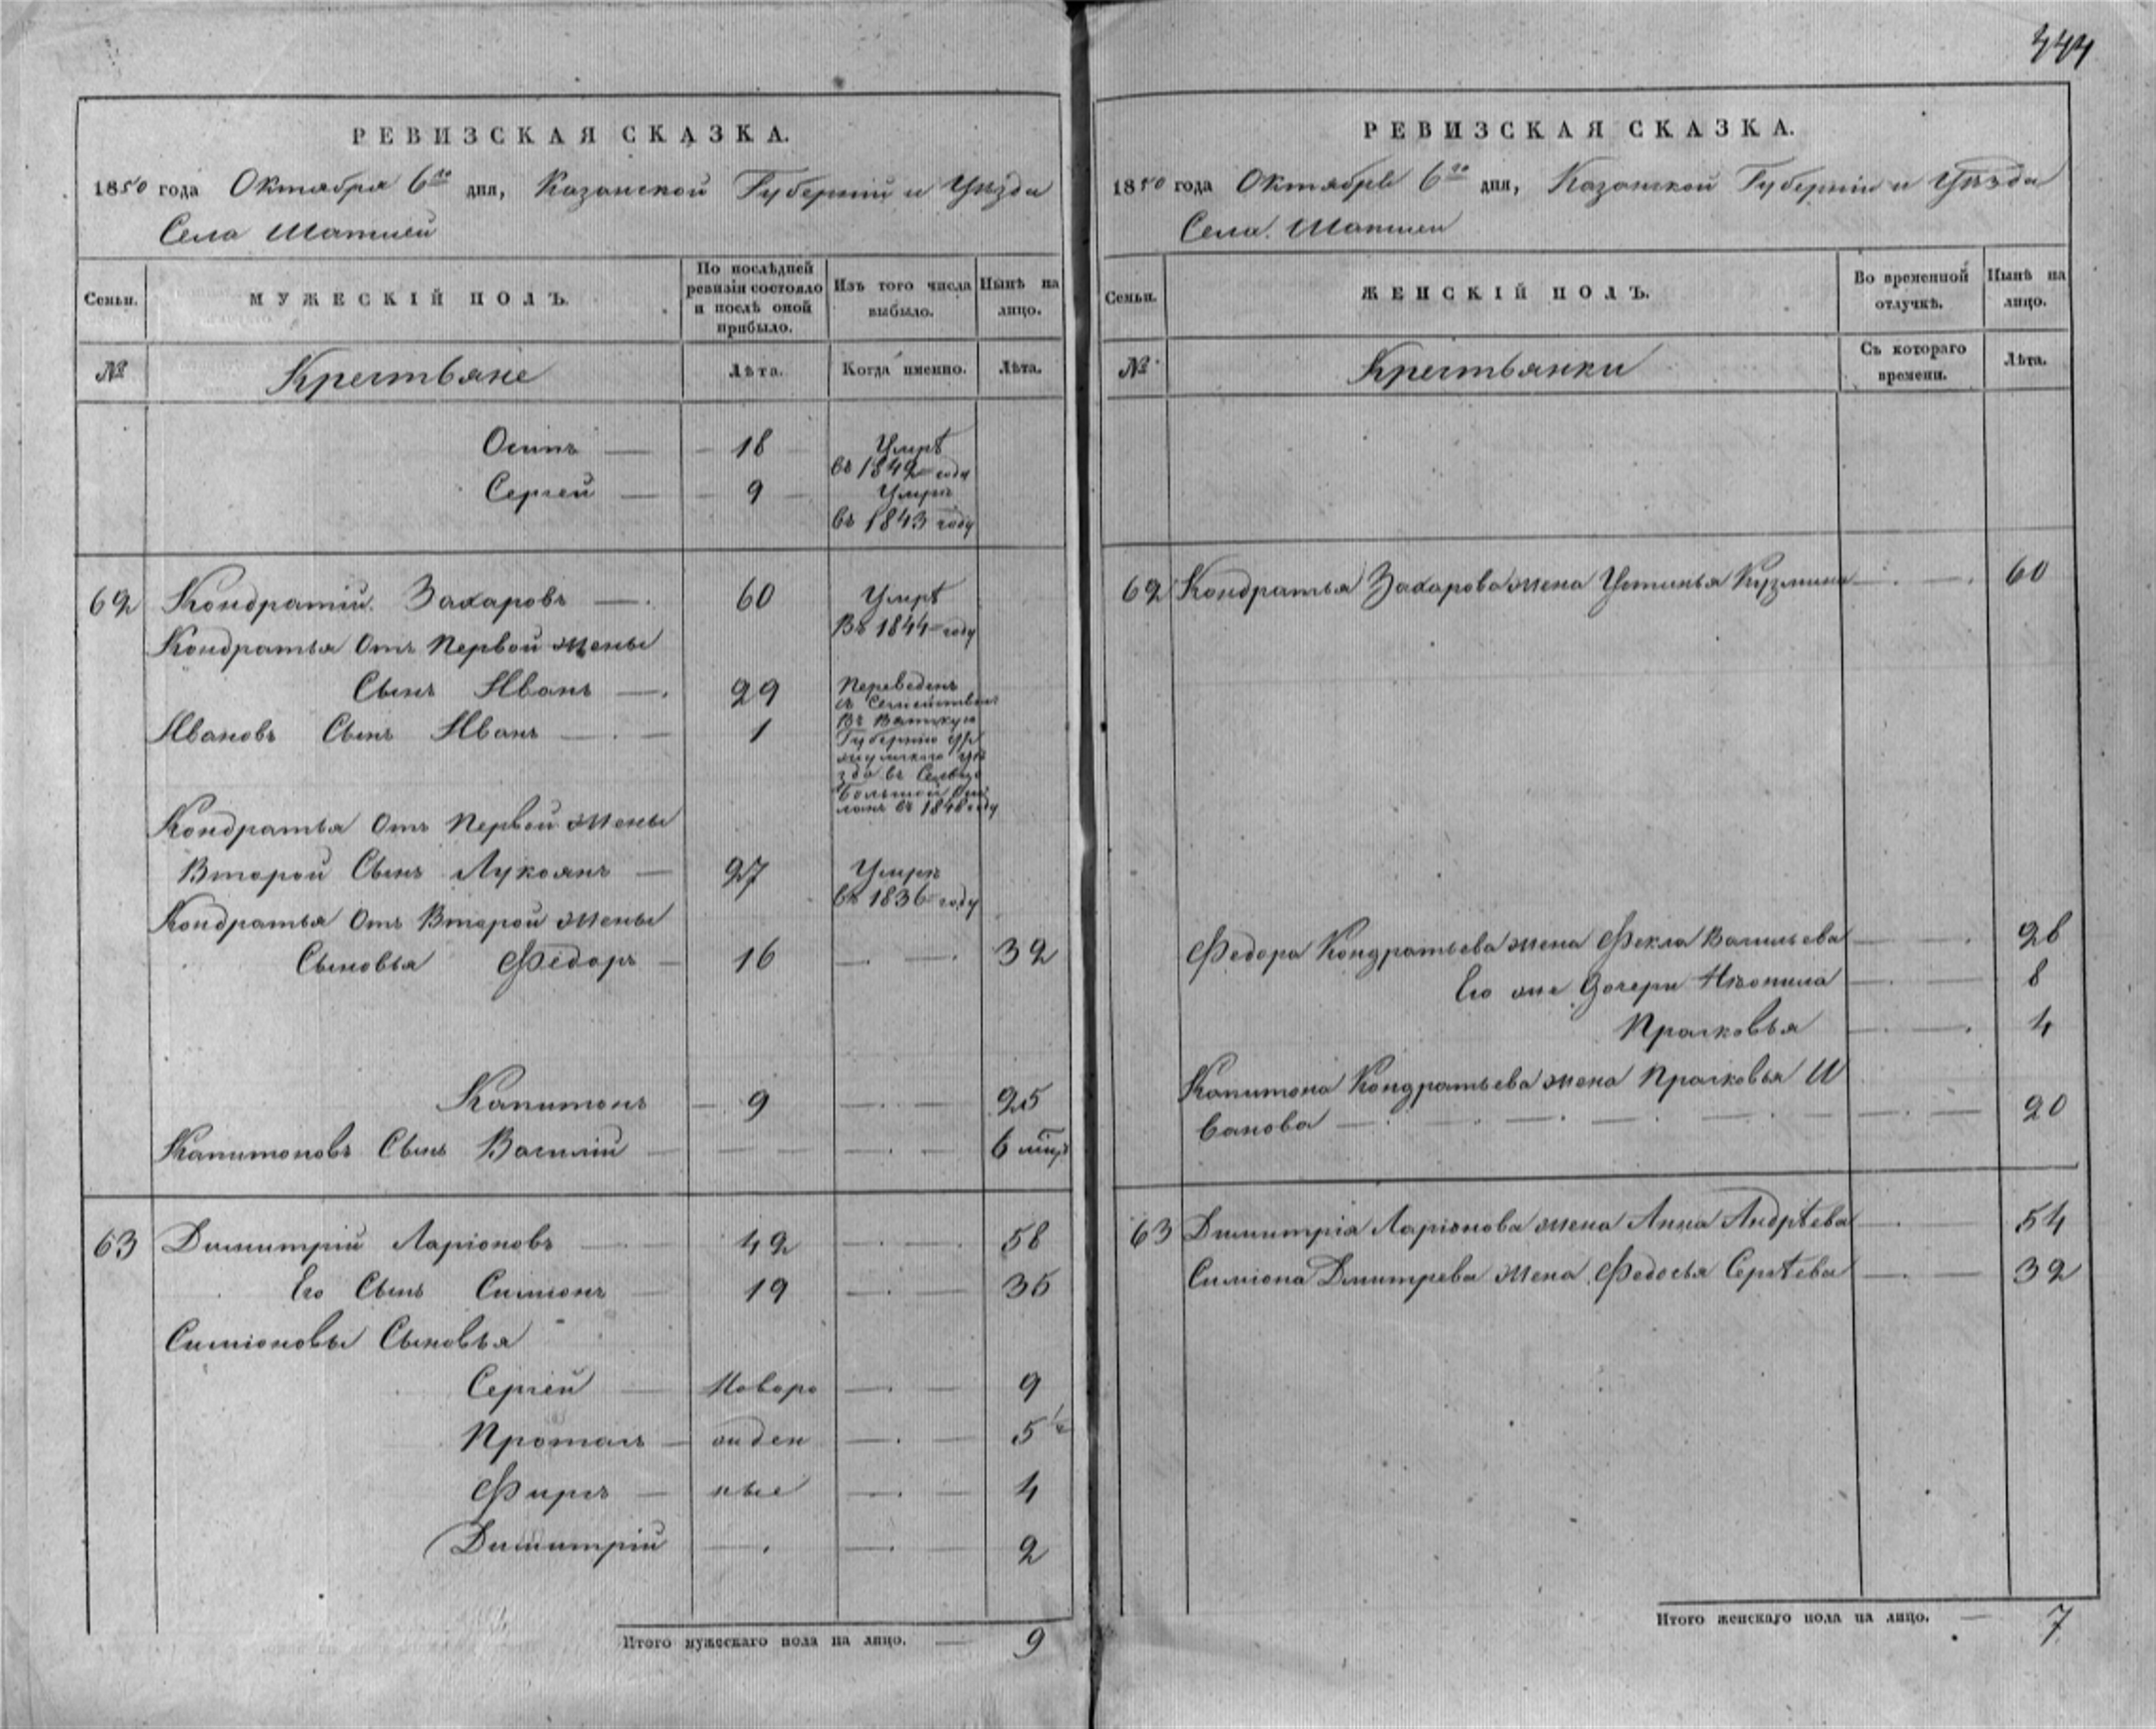 444
РЕВИЗСКАЯ СКАЗКА.
1850 года Октября 6го дня, Казанской Губерніи и Уѣзда
Села
Семьи. МУЖЕСКІЙ ПОЛЪ. По послѣдней ревизіи состояло и послѣ оной прибыло. Изъ того числа выбыло. Нынѣ на лицо.
№ Крестьяне Лѣта. Когда именно. Лѣта.
Осипъ — 18 Умрѣ
въ 1842 году
Сергей — 9 Умръ
въ 1843 году
62 Кондратій Захаровъ — 60 Умрѣ
Въ 1844 году
Кондратья Отъ Первой Жены
Сынъ Иванъ — 29 Переведенъ
съ Семействомъ
Ивановъ Сынъ Иванъ — 1 Въ Вятскую
Губернію Ур
жумскаго уѣ
зда въ
Большой
въ 1846 году
Кондратья Отъ Первой Жены
Второй Сынъ Лукоянъ — 27 Умръ
въ 1836 году
Кондратья Отъ Второй Жены
Сыновья Федоръ — 16 — 32
Капитонъ — 9 — 25
Капитоновъ Сынъ Василій — — — 6 мцъ
63 Димитрій Ларіоновъ — 42 — 58
Его Сынъ Симіонъ — 19 — 35
Симіоновы Сыновья
Сергѣй — Новоро — 9
Протасъ — жден — 5 1/2
Фирсъ — ные — 4
Димитрій — — 2
Итого мужескаго пола на лицо. — 9
РЕВИЗСКАЯ СКАЗКА.
1850 года Октября 6го дня, Казанской Губерніи и Уѣзда
Села
Семьи. ЖЕНСКІЙ ПОЛЪ. Во временной отлучкѣ. Нынѣ на лицо.
№ Крестьянки Съ котораго времени. Лѣта.
62 Кондратья Захарова жена Устинья Кузмина — 60
Федора Кондратьева жена Фекла Васильева — 28
Его же Дочери — 8
Прасковья — 4
Капитона Кондратьева жена Прасковья И
ванова — 20
63 Димитрія Ларіонова жена Анна Андрѣева — 54
Симіона Дмитрева жена Федосья Сергѣева — 32
Итого женскаго пола на лицо. — 7